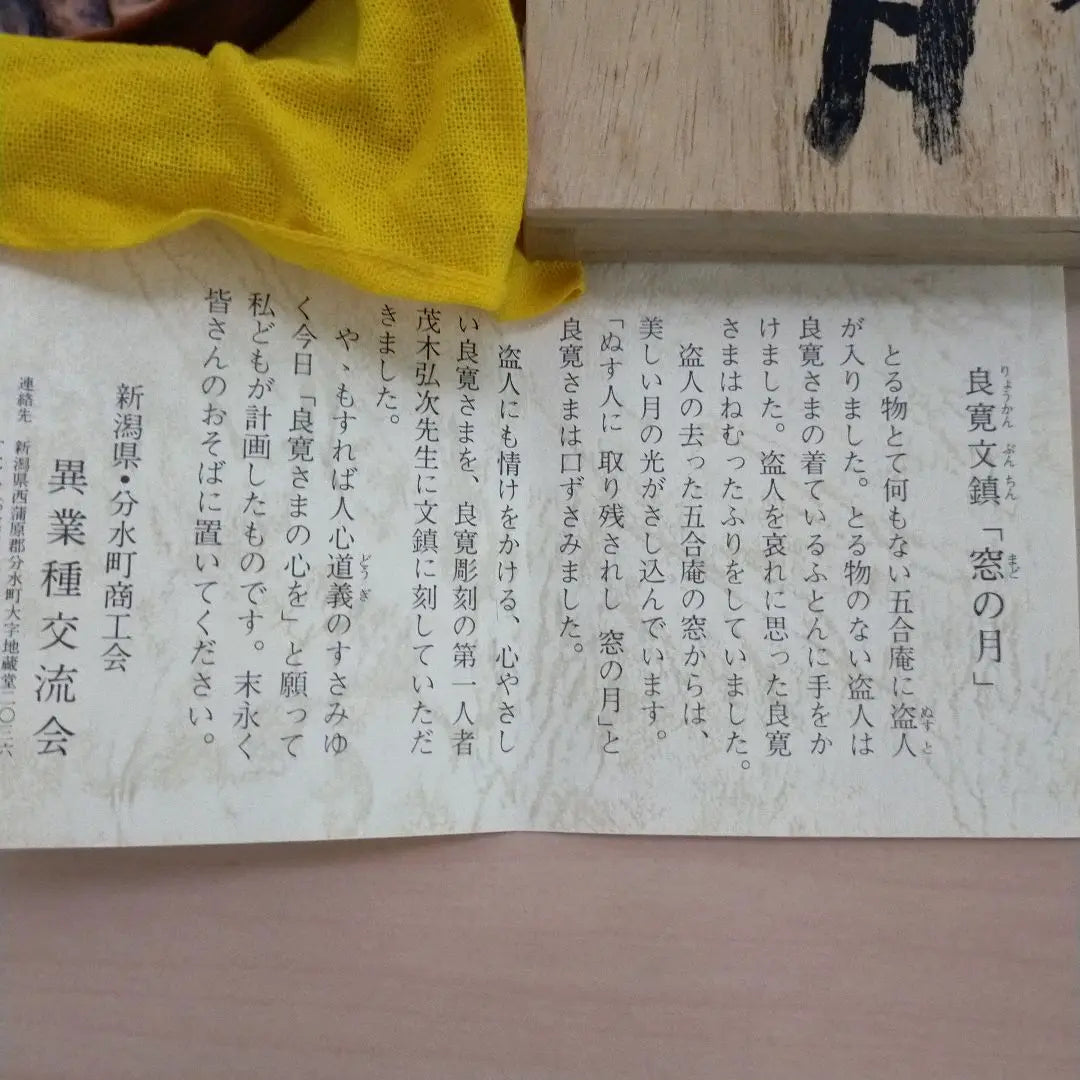 月
良寛文鎮「窓の月」
りょうかん ぶんちん まど
とる物とて何もない五合庵に盗人
ぬすと
が入りました。とる物のない盗人は
良寛さまの着ているふとんに手をか
けました。盗人を哀れに思った良寛
さまはねむったふりをしていました。
盗人の去った五合庵の窓からは、
美しい月の光がさし込んでいます。
「ぬす人に 取り残されし 窓の月」と
良寛さまは口ずさみました。
盗人にも情けをかける、心やさし
い良寛さまを、良寛彫刻の第一人者
茂木弘次先生に文鎮に刻していただ
きました。
やゝもすれば人心道義のすさみゆ
どうぎ
く今日「良寛さまの心を」と願って
私どもが計画したものです。末永く
皆さんのおそばに置いてください。
新潟県・分水町商工会
異業種交流会
連絡先 新潟県西蒲原郡分水町大字地蔵堂二〇三六